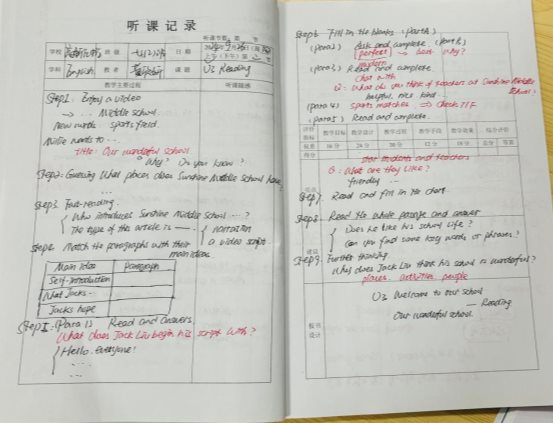 听课记录
听课节数 节
学校 班级 七(12)班 日期
学科 English 教者 课题 U3 Reading
教学主要过程 听课随感
Step1. Enjoy a video
→ ... Middle school.
New words: sports field.
Millie wants to ...
title: Our wonderful school.
Why? Do you know?
Step2: Guessing What places does Sunshine Middle School have?
Step3. Fast-reading.
Who introduces Sunshine Middle School ...?
The type of the article is —— narration
a video script.
Step4. Match the paragraphs with their
main ideas
Main idea Paragraph
Self-introduction
What Jack's..
Jack's hope
Step5. (Para 1) Read and answers
What does Jack Liu begin his script with?
Hello. everyone!
...
...
Step6 Fill in the blanks (part A)
(para2) Ask and complete. (Part B)
perfect → best why?
modern
(para3) Read and complete
chat with
Q: What do you think of teachers at Sunshine Middle School?
helpful, nice, kind...
(para4) sports matches → Check T/F
(para5) Read and complete.
评价指标 教学目标 教学设计 教学过程 教学手段 教学效果 综合评价
权重 16分 24分 30分 12分 18分 总分 等第
得分
star students and teachers
Q: What are they like?
friendly ...
Step7. Read and fill in the chart.
Step8. Read the whole passage and answer
Does he like his school life?
Can you find some key words or phrases?
建议
Step9. Further thinking.
Why does Jack Liu think his school is wonderful?
places activities people
U3 Welcome to our school
— Reading
Our wonderful school.
板书设计